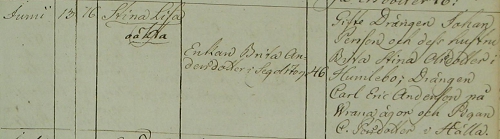 Junii 13 16 Stina Lisa
oäkta
Enkan Brita An-
dersdotter i 46
Gifte Drängen Johan
Person och dess hustru
Brita Stina Olsdotter i
Humlebo; Drängen
Carl Eric Anderson på
Wrang ägor och Pigan
C. Persdotter i Hälla.